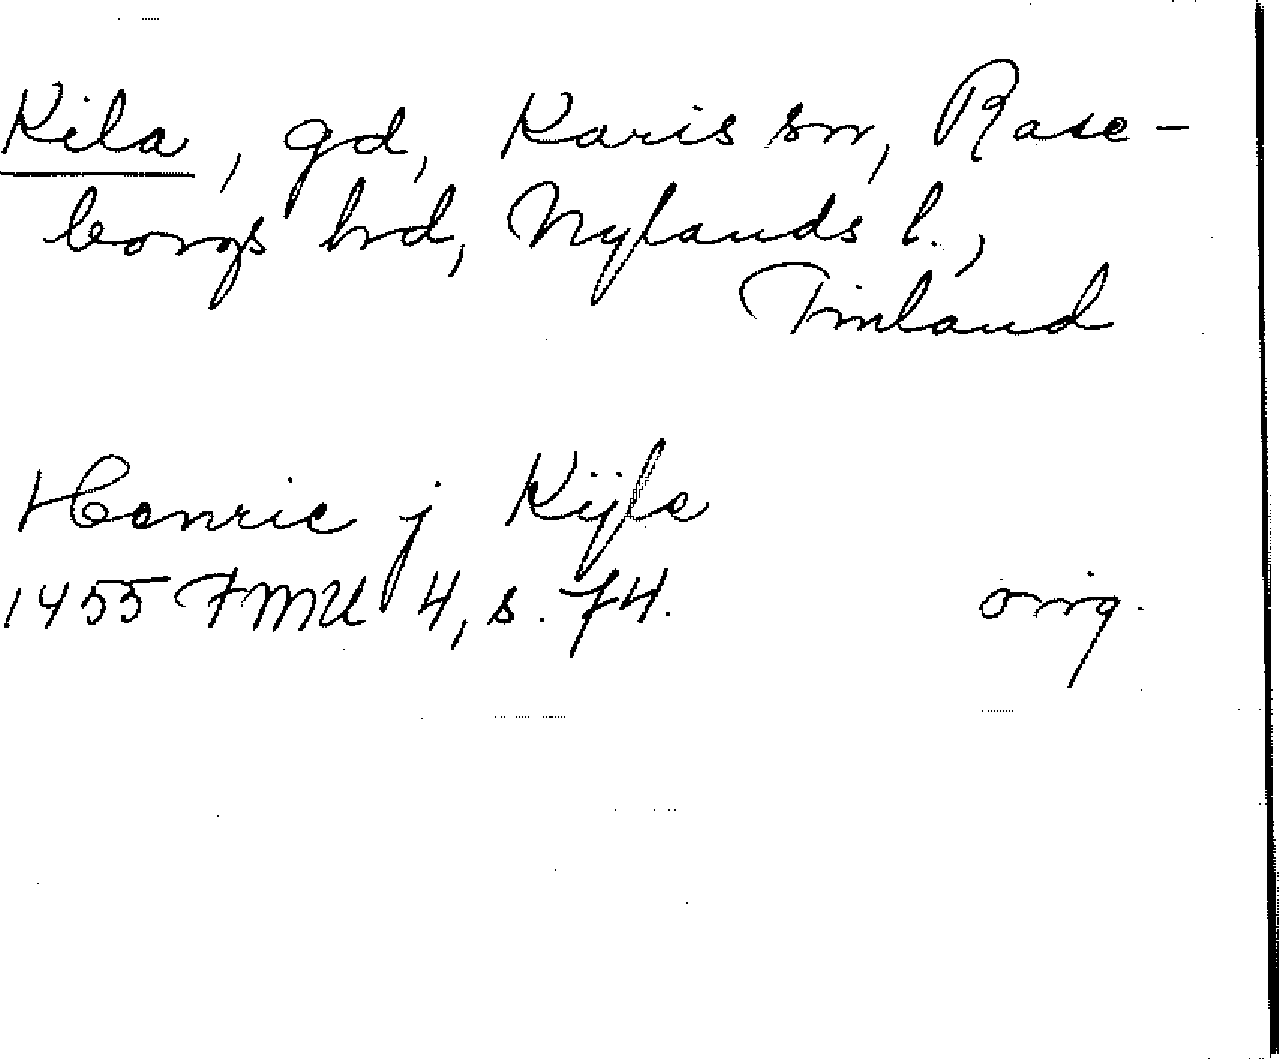 Kila, gd, Karis sn, Rase-
borgs hrd, Nylands l.,
Finland
Henric j Kijle
1455 FMU 4, s. 74.
orig.